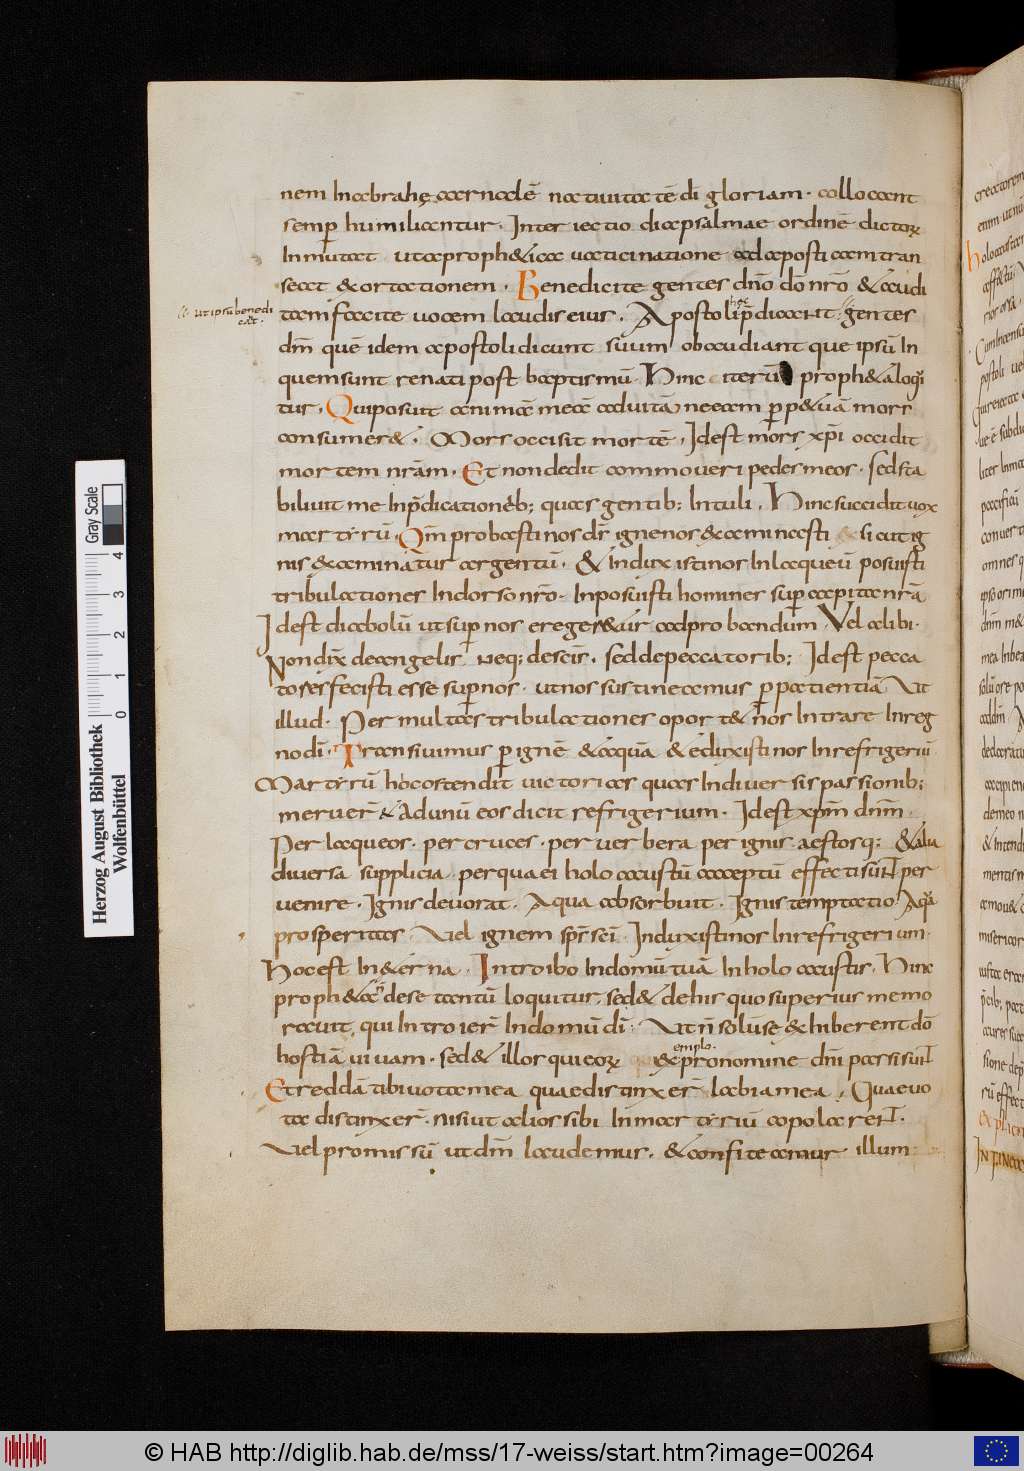 nem In abrahę carnalē natiuitatē di gloriam. collocant
semp humiliantur. Inter iectio diapsalmae ordinē dictorꝝ
Inmutat ut aproph&ica uaticinatione ad aposticam tran
seat & ortationem. Benedicite gentes dno dō nrō & audi
ut ipsū benedi
cat.
tam facite uocem laudis eius. Apostoli p̄dicant gentes
hęc
dm̄ quē idem apostoli dicunt suum obaudiant que ipsū In
quem sunt renati post baptismū. Hinc iterū proph&a loqi
tur. Qui posuit animā meā ad uitā ne eam p̱p&uā mors
consumer&. Mors occisit mortē. Idest mors xpi occidit
mortem nrām. Et non dedit commoueri pedes meos. sed sta
biliuit me In p̄dicationeb; quas gentib; Intuli. Hinc succidit uox
martyrū. Qm̄ probasti nos dš igne nos examinasti sicut ig
nis examinatur argentū. & Induxisti nos In laqueū posuisti
tribulationes In dorso nrō. Inposuisti homines sup capita nrā
Idest diabolū ut sup nos ereger&uir ad probandum. Vel alibi.
Non dix̄ de angelis neq; de scīs. sed de peccatorib; Idest pecca
tores fecisti esse sup nos. ut nos sustineamus p̱ patientiā Vt
illud. Per multas tribulationes oport& nos Intrare In reg
no dī. Transiuimus p̱ ignē & aquā & eduxisti nos In refrigeriū
Martyrū hoc ostendit uictorias quas In diuersis passionib;
meruer̄ & ad unū eos dicit refrigerium. Idest xpm̄ dnm̄.
Per laqueos. per cruces. per uerbera per ignis aestosq; & alia
diuersa supplicia. per qua ei holocaustū acceptū effecti sunt per
uenire. Ignis deuorat. Aqua absorbuit. Ignis temptatio. Aqua
prosperitas. Vel ignem spr̄ sci. Induxisti nos In refrigerium.
Hoc est In &erna. Introibo In domū tuā In holocaustis. Hinc
proph&a de se tantū loquitur, sed & de his quos superius memo
rauit, qui Introier̄ In domū dī. Vt n̄ solū se exhiberent dō
hostiā uiuam. sed & illos qui eorꝝ exemplo pro nomine dni passi sunt
Et reddā tibi uota mea quae distinxer̄ labia mea. Quae uo
ta distinxer̄. nisi ut alios sibi In martyriū copolarent.
Vel promissū ut dm̄ laudemus. & confiteamur illum
Herzog August Bibliothek
Wolfenbüttel
0 1 2 3 4
Gray Scale
© HAB http://diglib.hab.de/mss/17-weiss/start.htm?image=00264